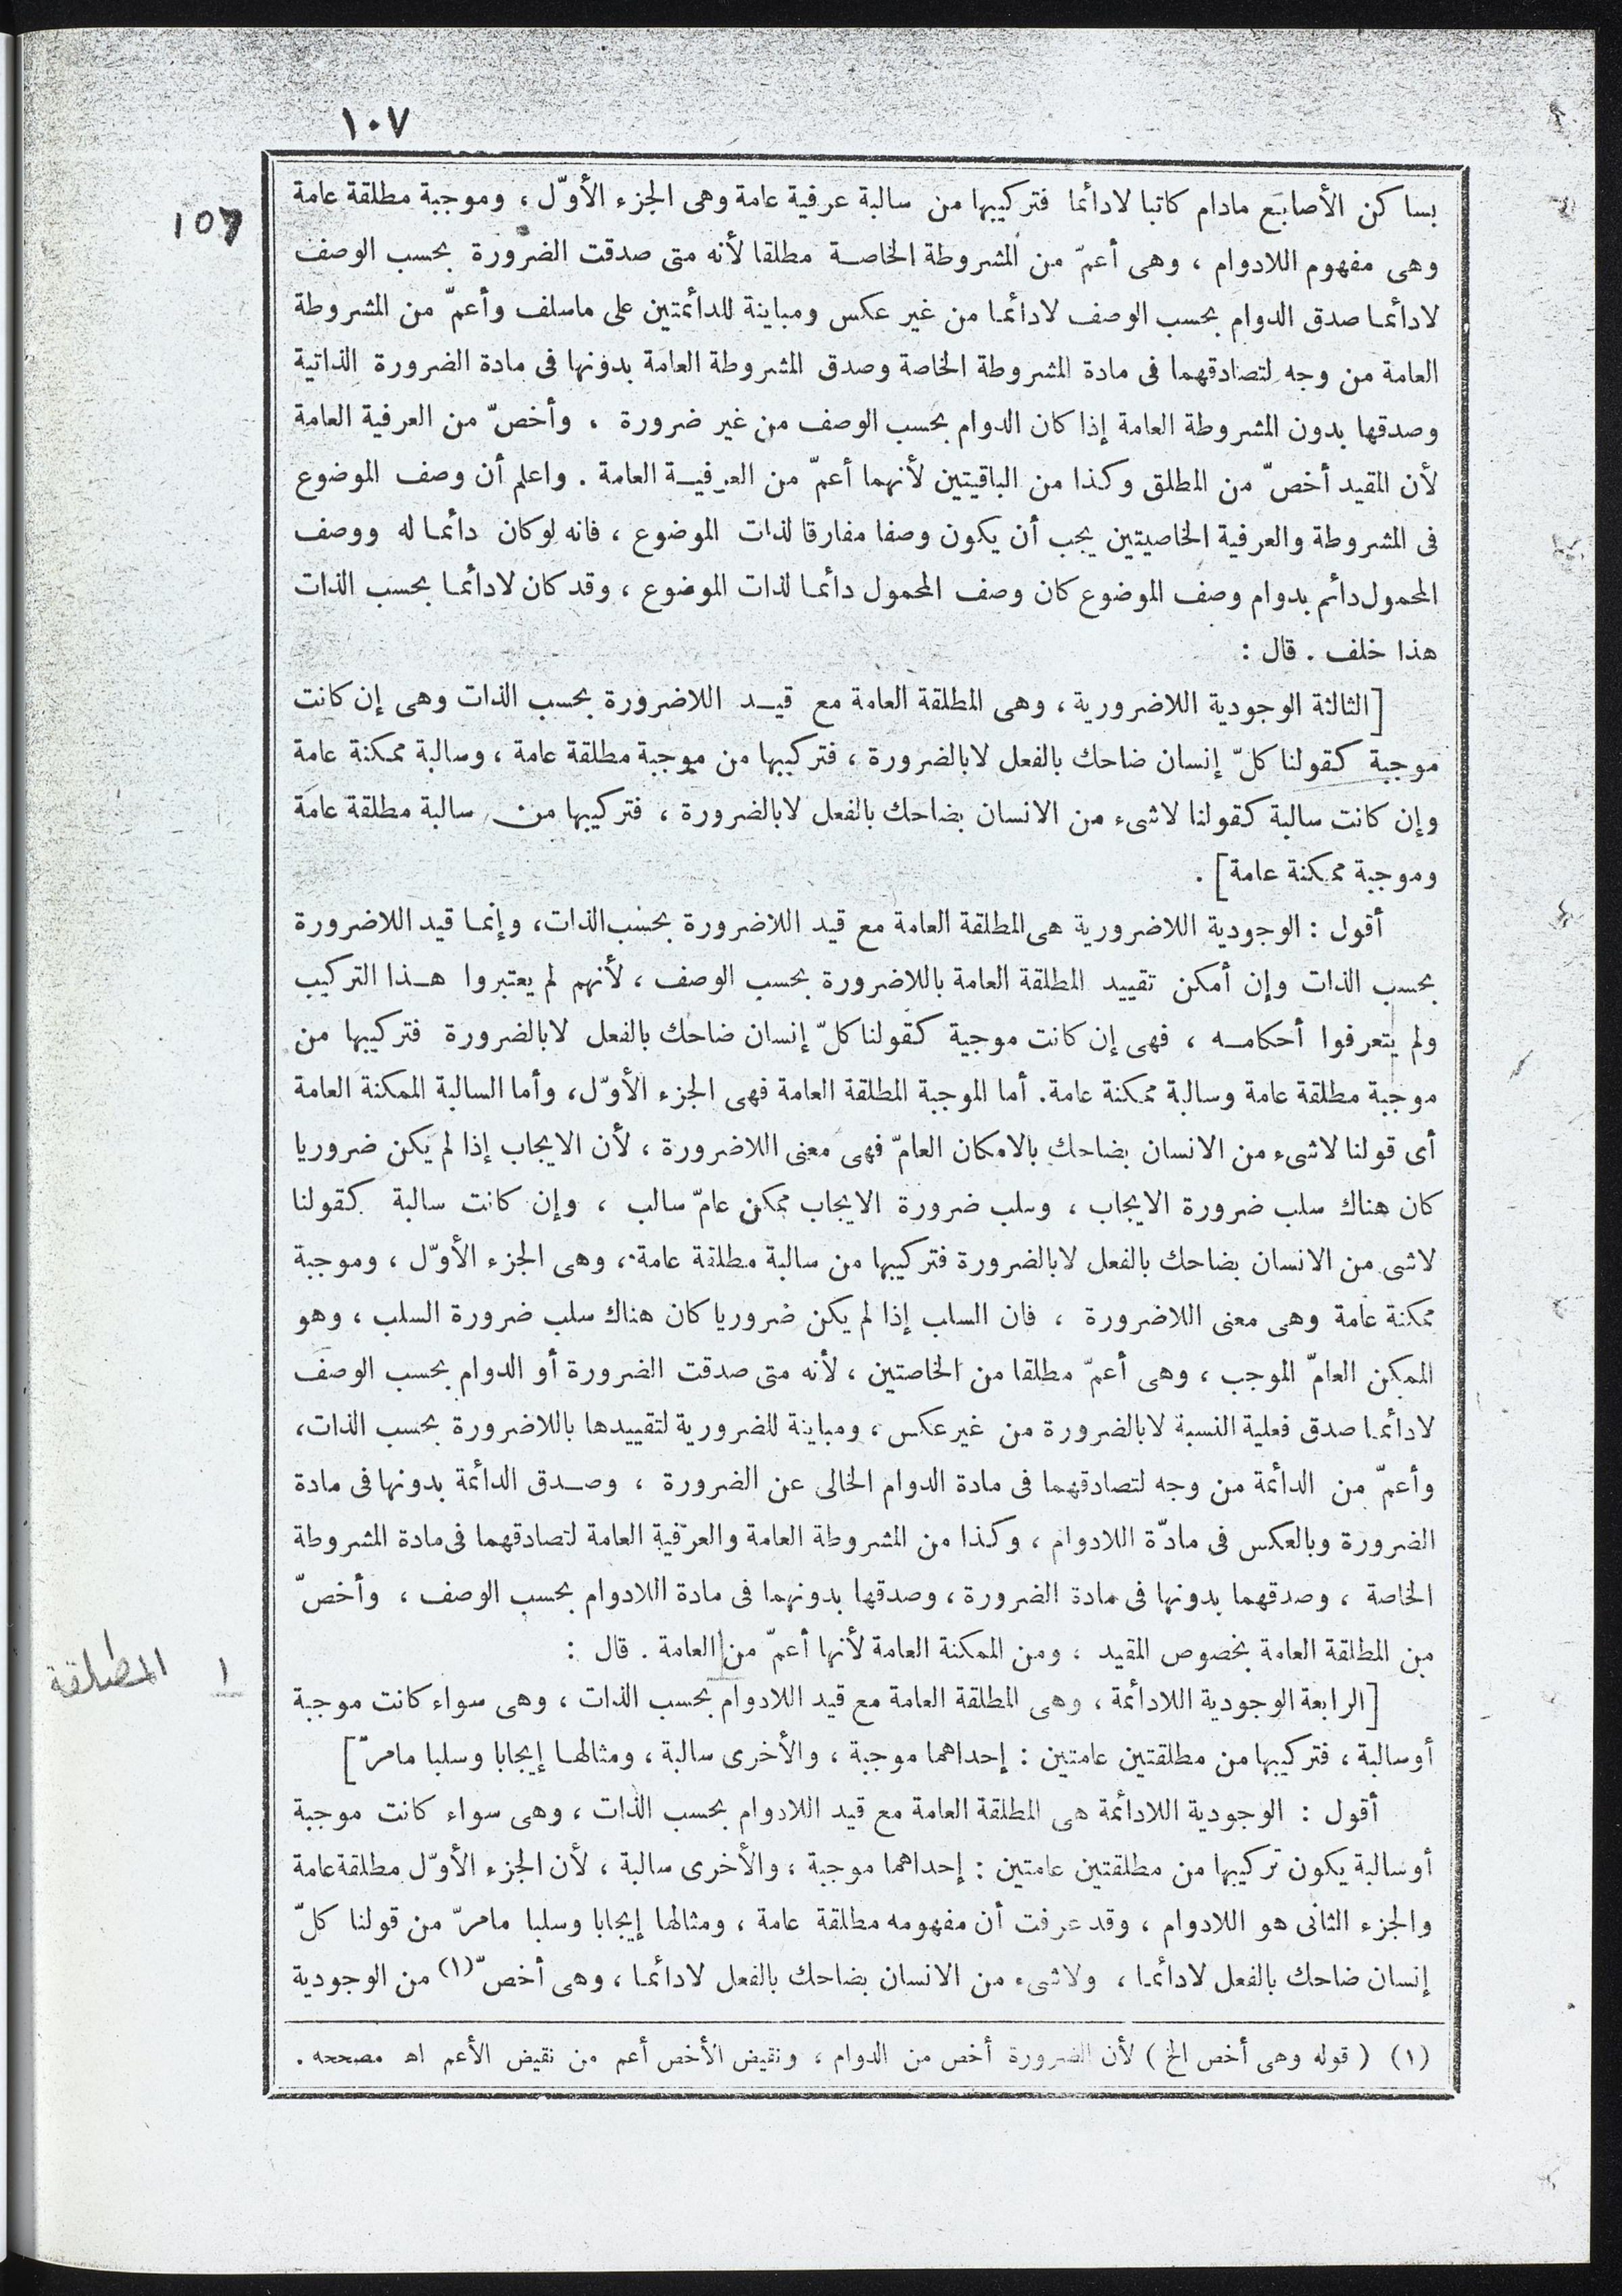 ١٠٧
107
بساكن الأصابع مادام كاتبا لادائما فتركيبها من سالبة عرفية عامة وهى الجزء الأوّل ، وموجبة مطلقة عامة
وهى مفهوم اللادوام ، وهى أعمّ من المشروطة الخاصة مطلقا لأنه متى صدقت الضرورة بحسب الوصف
لادائما صدق الدوام بحسب الوصف لادائما من غير عكس ومباينة للدائمتين على ماسلف وأعمّ من المشروطة
العامة من وجه لتصادقهما فى مادة المشروطة الخاصة وصدق المشروطة العامة بدونها فى مادة الضرورة الذاتية
وصدقها بدون المشروطة العامة إذا كان الدوام بحسب الوصف من غير ضرورة ، وأخصّ من العرفية العامة
لأن المقيد أخصّ من المطلق وكذا من الباقيتين لأنهما أعمّ من العرفية العامة . واعلم أن وصف الموضوع
فى المشروطة والعرفية الخاصيتين يجب أن يكون وصفا مفارقا لذات الموضوع ، فانه لوكان دائما له ووصف
المحمول دائم بدوام وصف الموضوع كان وصف المحمول دائما لذات الموضوع ، وقد كان لادائما بحسب الذات
هذا خلف . قال :
[الثالثة الوجودية اللاضرورية ، وهى المطلقة العامة مع قيد اللاضرورة بحسب الذات وهى إن كانت
موجبة كقولنا كلّ إنسان ضاحك بالفعل لابالضرورة ، فتركيبها من موجبة مطلقة عامة ، وسالبة ممكنة عامة
وإن كانت سالبة كقولنا لاشىء من الانسان بضاحك بالفعل لابالضرورة ، فتركيبها من سالبة مطلقة عامة
وموجبة ممكنة عامة] .
أقول : الوجودية اللاضرورية هى المطلقة العامة مع قيد اللاضرورة بحسب الذات، وإنما قيد اللاضرورة
بحسب الذات وإن أمكن تقييد المطلقة العامة باللاضرورة بحسب الوصف ، لأنهم لم يعتبروا هذا التركيب
ولم يتعرفوا أحكامه ، فهى إن كانت موجبة كقولنا كلّ إنسان ضاحك بالفعل لابالضرورة فتركيبها من
موجبة مطلقة عامة وسالبة ممكنة عامة. أما الموجبة المطلقة العامة فهى الجزء الأوّل، وأما السالبة الممكنة العامة
أى قولنا لاشىء من الانسان بضاحك بالامكان العامّ فهى معنى اللاضرورة ، لأن الايجاب إذا لم يكن ضروريا
كان هناك سلب ضرورة الايجاب ، وسلب ضرورة الايجاب ممكن عامّ سالب ، وإن كانت سالبة كقولنا
لاشى من الانسان بضاحك بالفعل لابالضرورة فتركيبها من سالبة مطلقة عامة ، وهى الجزء الأوّل ، وموجبة
ممكنة عامة وهى معنى اللاضرورة ، فان السلب إذا لم يكن ضروريا كان هناك سلب ضرورة السلب ، وهو
الممكن العامّ الموجب ، وهى أعمّ مطلقا من الخاصتين ، لأنه متى صدقت الضرورة أو الدوام بحسب الوصف
لادائما صدق فعلية النسبة لابالضرورة من غير عكس ، ومباينة للضرورية لتقييدها باللاضرورة بحسب الذات،
وأعمّ من الدائمة من وجه لتصادقهما فى مادة الدوام الخالى عن الضرورة ، وصدق الدائمة بدونها فى مادة
الضرورة وبالعكس فى مادّة اللادوام ، وكذا من المشروطة العامة والعرفية العامة لتصادقهما فى مادة المشروطة
الخاصة ، وصدقهما بدونها فى مادة الضرورة ، وصدقها بدونهما فى مادة اللادوام بحسب الوصف ، وأخصّ
من المطلقة العامة بخصوص المقيد ، ومن الممكنة العامة لأنها أعمّ من العامة . قال :
١ المطلقة
[الرابعة الوجودية اللادائمة ، وهى المطلقة العامة مع قيد اللادوام بحسب الذات ، وهى سواء كانت موجبة
أو سالبة ، فتركيبها من مطلقتين عامتين : إحداهما موجبة ، والأخرى سالبة ، ومثالها إيجابا وسلبا مامرّ]
أقول : الوجودية اللادائمة هى المطلقة العامة مع قيد اللادوام بحسب الذات ، وهى سواء كانت موجبة
أو سالبة يكون تركيبها من مطلقتين عامتين : إحداهما موجبة ، والأخرى سالبة ، لأن الجزء الأوّل مطلقة عامة
والجزء الثانى هو اللادوام ، وقد عرفت أن مفهومه مطلقة عامة ، ومثالها إيجابا وسلبا مامرّ من قولنا كلّ
إنسان ضاحك بالفعل لادائما ، ولاشىء من الانسان بضاحك بالفعل لادائما ، وهى أخصّ (١) من الوجودية
(١) ( قوله وهى أخص الخ ) لأن الضرورة أخص من الدوام ، ونقيض الأخص أعم من نقيض الأعم اه مصححه .